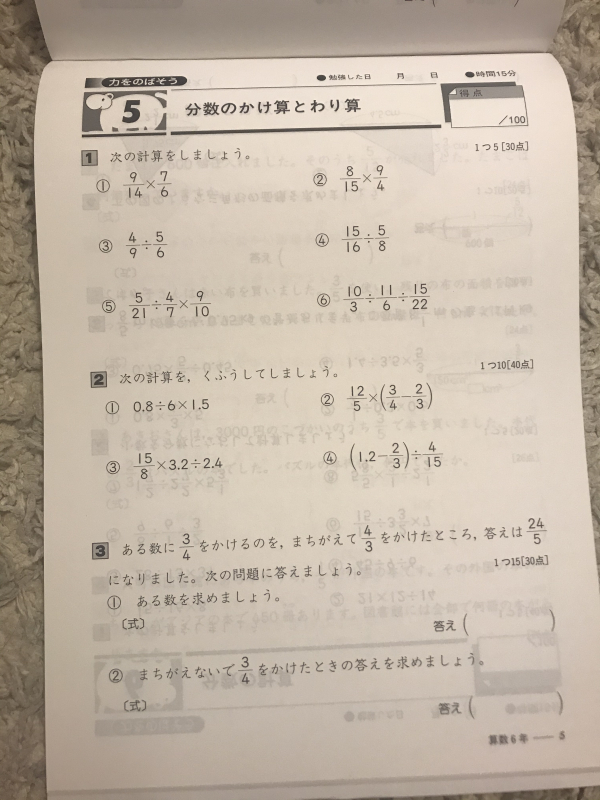 力をのばそう ●勉強した日 月 日 ●時間15分
5 分数のかけ算とわり算
得点
/100
1 次の計算をしましょう。 1つ5[30点]
① 9/14×7/6 ② 8/15×9/4
③ 4/9÷5/6 ④ 15/16÷5/8
⑤ 5/21÷4/7×9/10 ⑥ 10/3÷11/6÷15/22
2 次の計算を，くふうしてしましょう。 1つ10[40点]
① 0.8÷6×1.5 ② 12/5×(3/4−2/3)
③ 15/8×3.2÷2.4 ④ (1.2−2/3)÷4/15
3 ある数に3/4をかけるのを，まちがえて4/3をかけたところ，答えは24/5
になりました。次の問題に答えましょう。 1つ15[30点]
① ある数を求めましょう。
〔式〕 答え( )
② まちがえないで3/4をかけたときの答えを求めましょう。
〔式〕 答え( )
算数6年 — 5